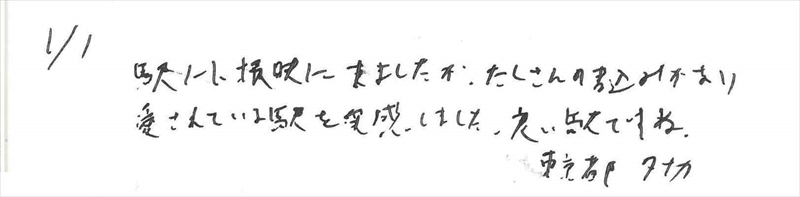 1/1
駅に撮影に来ましたが、たくさんの書込みがあり
愛されている駅を実感しました。良い駅ですね。
東京都 タナカ